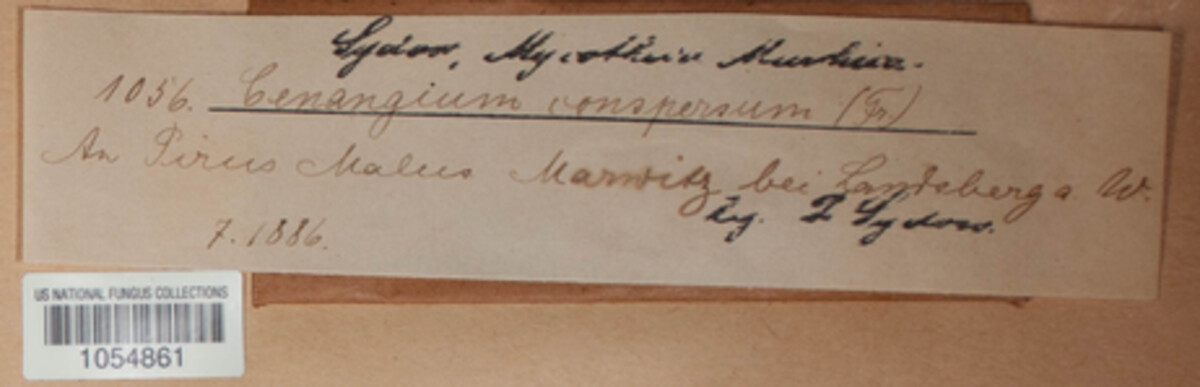 Sydow, Mycotheca Marchica.
1056. Cenangium conspersum (Fr.)
An Pirus Malus Marwitz bei Landsberg a. W.
leg. P. Sydow.
7. 1886.
US NATIONAL FUNGUS COLLECTIONS
1054861